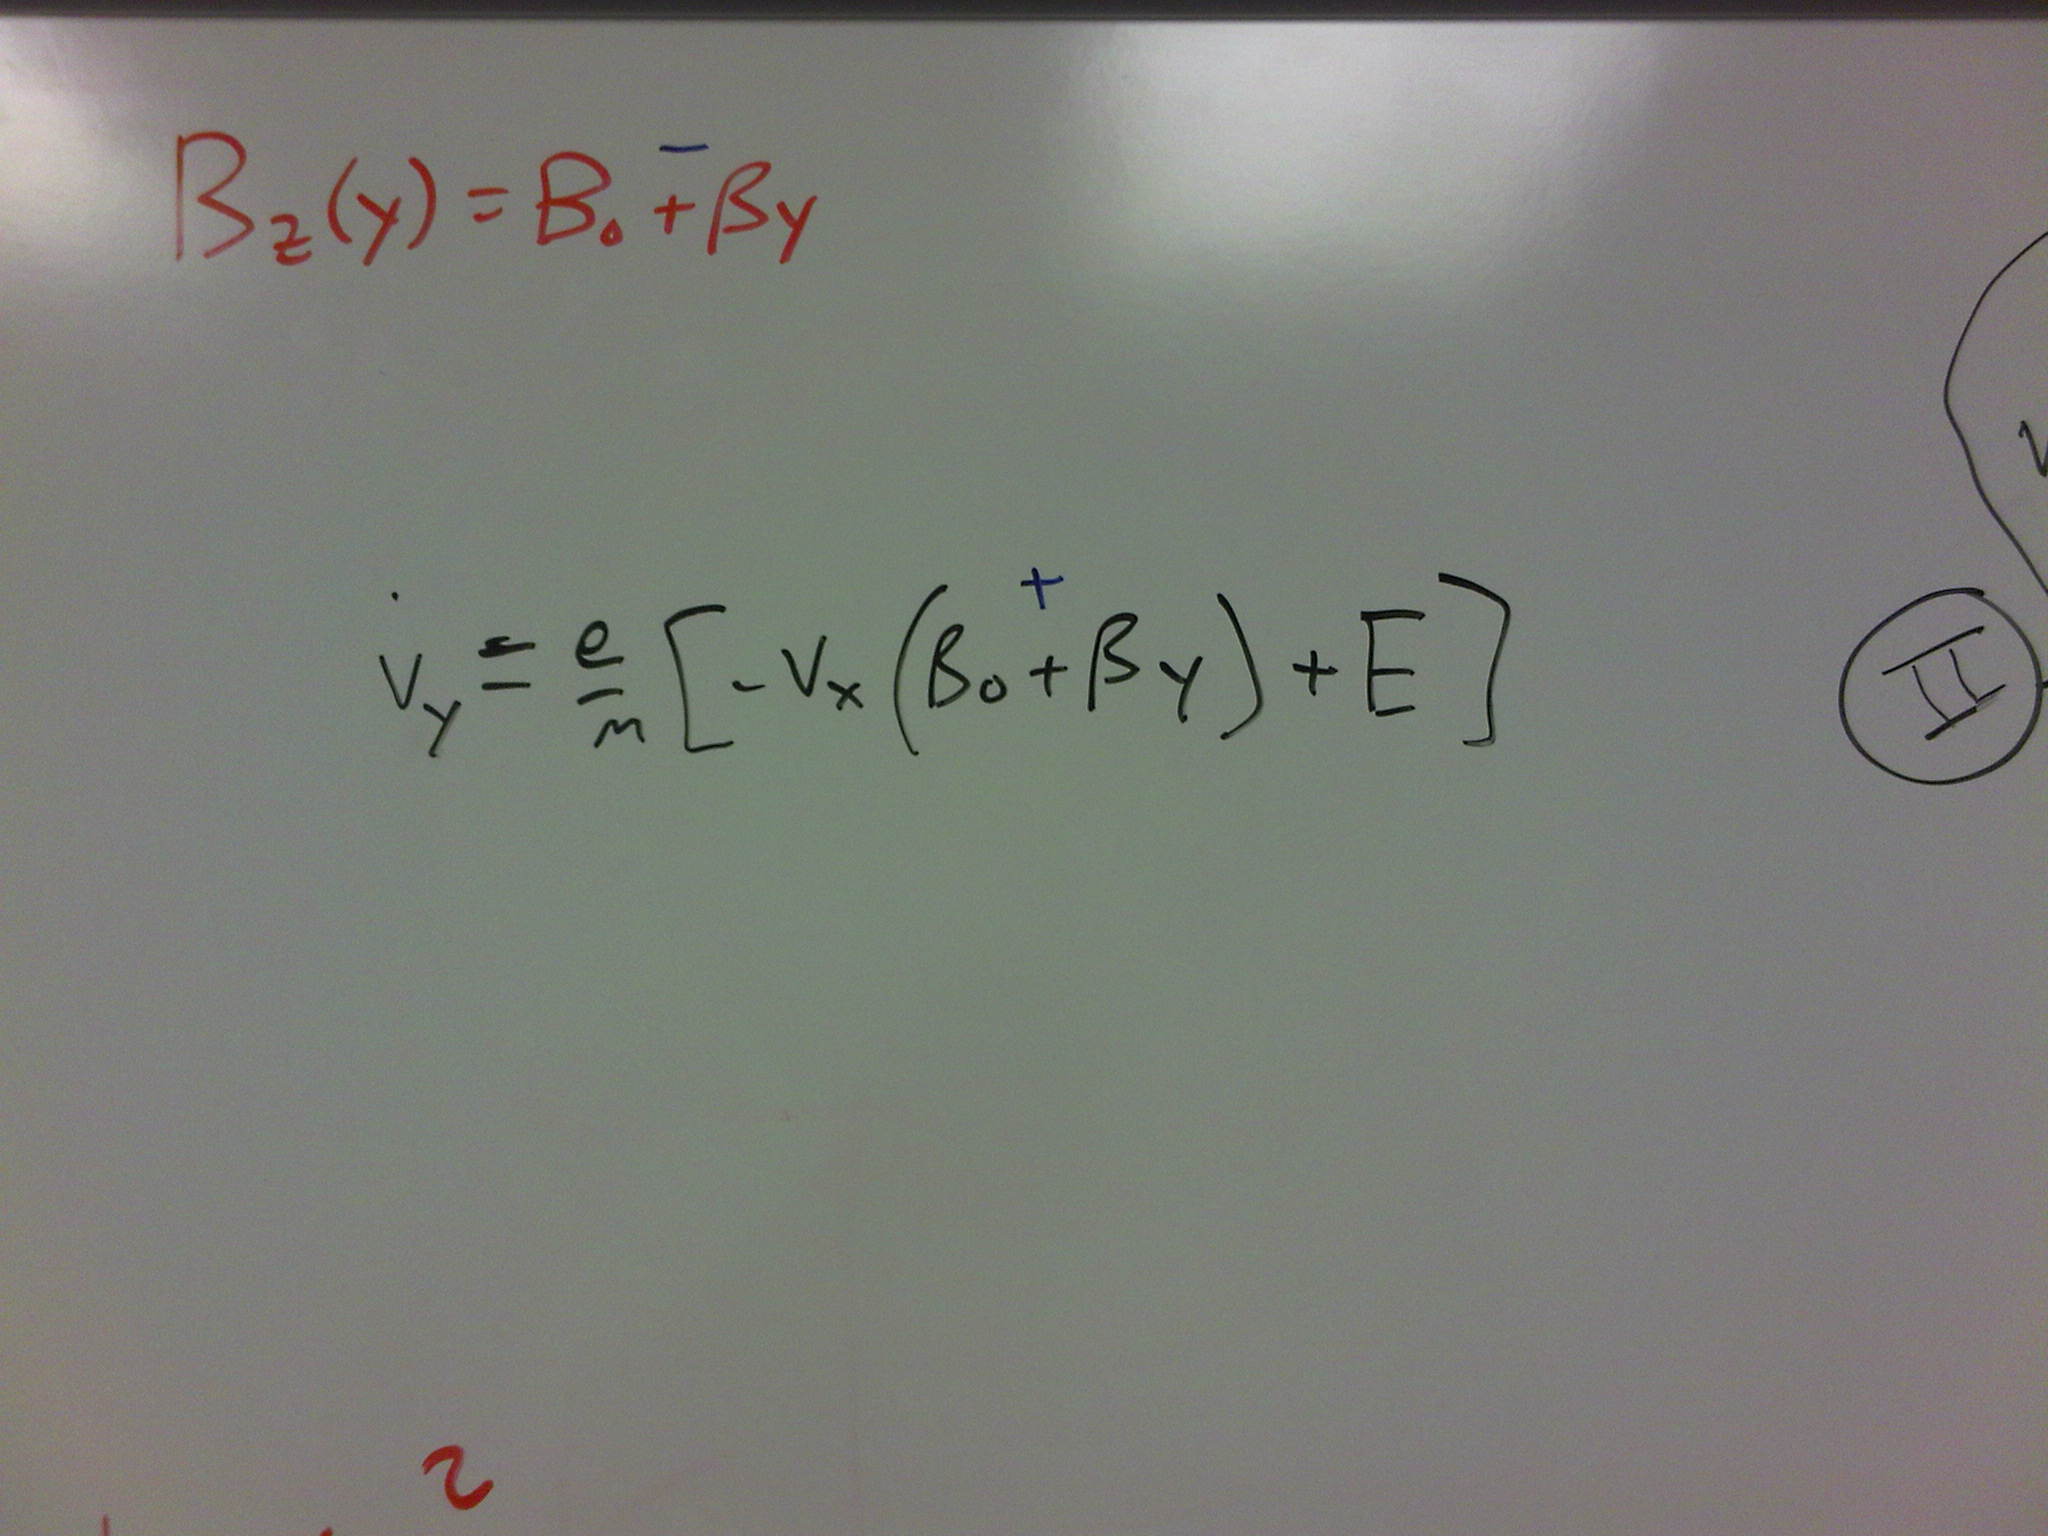 B_z(y) = B_0 + βy
−
+
v̇_y = e/m [-v_x (B_0 + βy) + E]
II
V
2